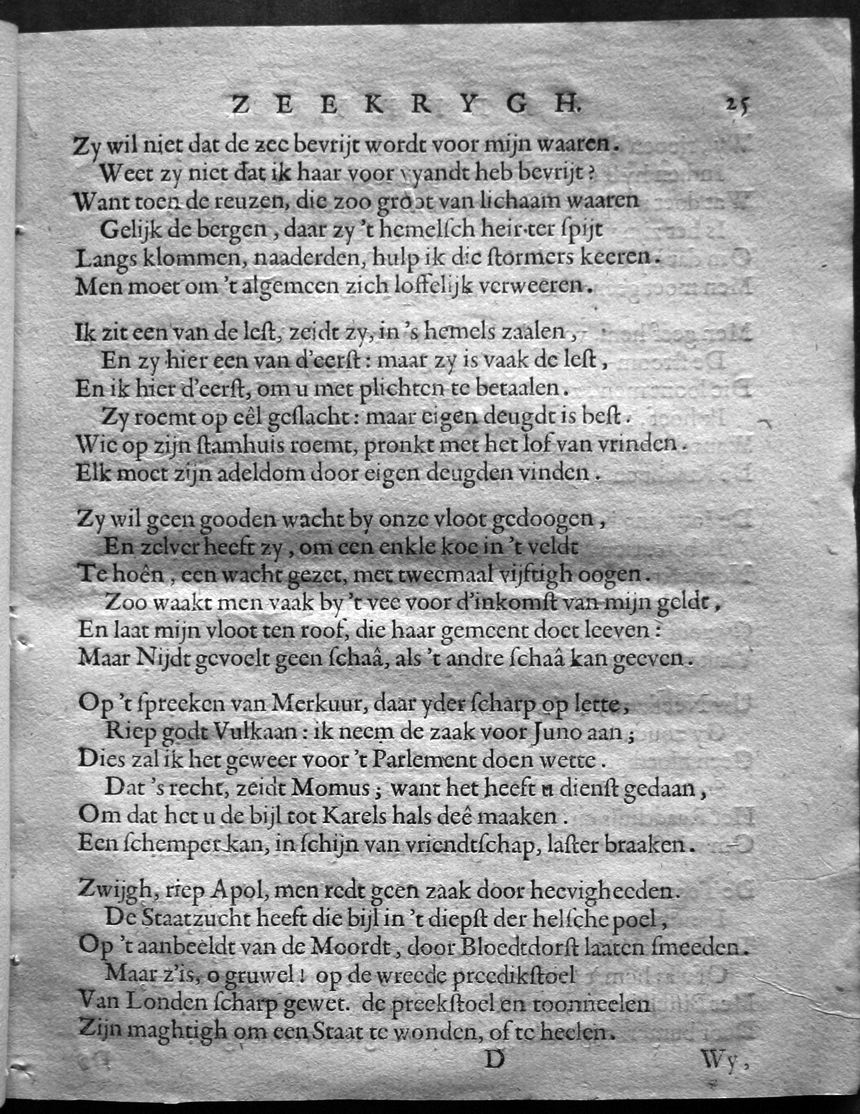 ZEEKRYGH. 25
Zy wil niet dat de zee bevrijt wordt voor mijn waaren.
Weet zy niet dat ik haar voor vyandt heb bevrijt?
Want toen de reuzen, die zoo groot van lichaam waaren
Gelijk de bergen, daar zy 't hemelſch heir ter ſpijt
Langs klommen, naaderden, hulp ik die ſtormers keeren.
Men moet om 't algemeen zich loffelijk verweeren.
Ik zit een van de leſt, zeidt zy, in 's hemels zaalen,
En zy hier een van d'eerſt: maar zy is vaak de leſt,
En ik hier d'eerſt, om u met plichten te betaalen.
Zy roemt op eêl geſlacht: maar eigen deugdt is beſt.
Wie op zijn ſtamhuis roemt, pronkt met het lof van vrinden.
Elk moet zijn adeldom door eigen deugden vinden.
Zy wil geen gooden wacht by onze vloot gedoogen,
En zelver heeft zy, om een enkle koe in 't veldt
Te hoên, een wacht gezet, met tweemaal vijftigh oogen.
Zoo waakt men vaak by 't vee voor d'inkomſt van mijn geldt,
En laat mijn vloot ten roof, die haar gemeent doet leeven:
Maar Nijdt gevoelt geen ſchaâ, als 't andre ſchaâ kan geeven.
Op 't ſpreeken van Merkuur, daar yder ſcharp op lette,
Riep godt Vulkaan: ik neem de zaak voor Juno aan;
Dies zal ik het geweer voor 't Parlement doen wette.
Dat 's recht, zeidt Momus; want het heeft u dienſt gedaan,
Om dat het u de bijl tot Karels hals deê maaken.
Een ſchemper kan, in ſchijn van vriendtſchap, laſter braaken.
Zwijgh, riep Apol, men redt geen zaak door heevigheeden.
De Staatzucht heeft die bijl in 't diepſt der helſche poel,
Op 't aanbeeldt van de Moordt, door Bloedtdorſt laaten ſmeeden.
Maar z'is, o gruwel! op de wreede preedikſtoel
Van Londen ſcharp gewet. de preekſtoel en toonneelen
Zijn maghtigh om een Staat te wonden, of te heelen.
D Wy,